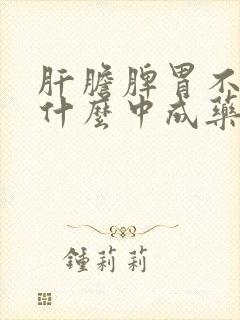 肝膽脾胃不
什麼中成藥
鍾莉莉